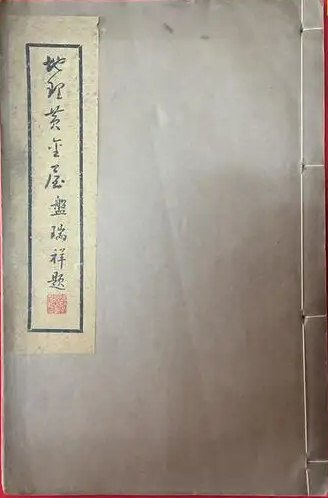 地理黄金屋 盤瑞祥題